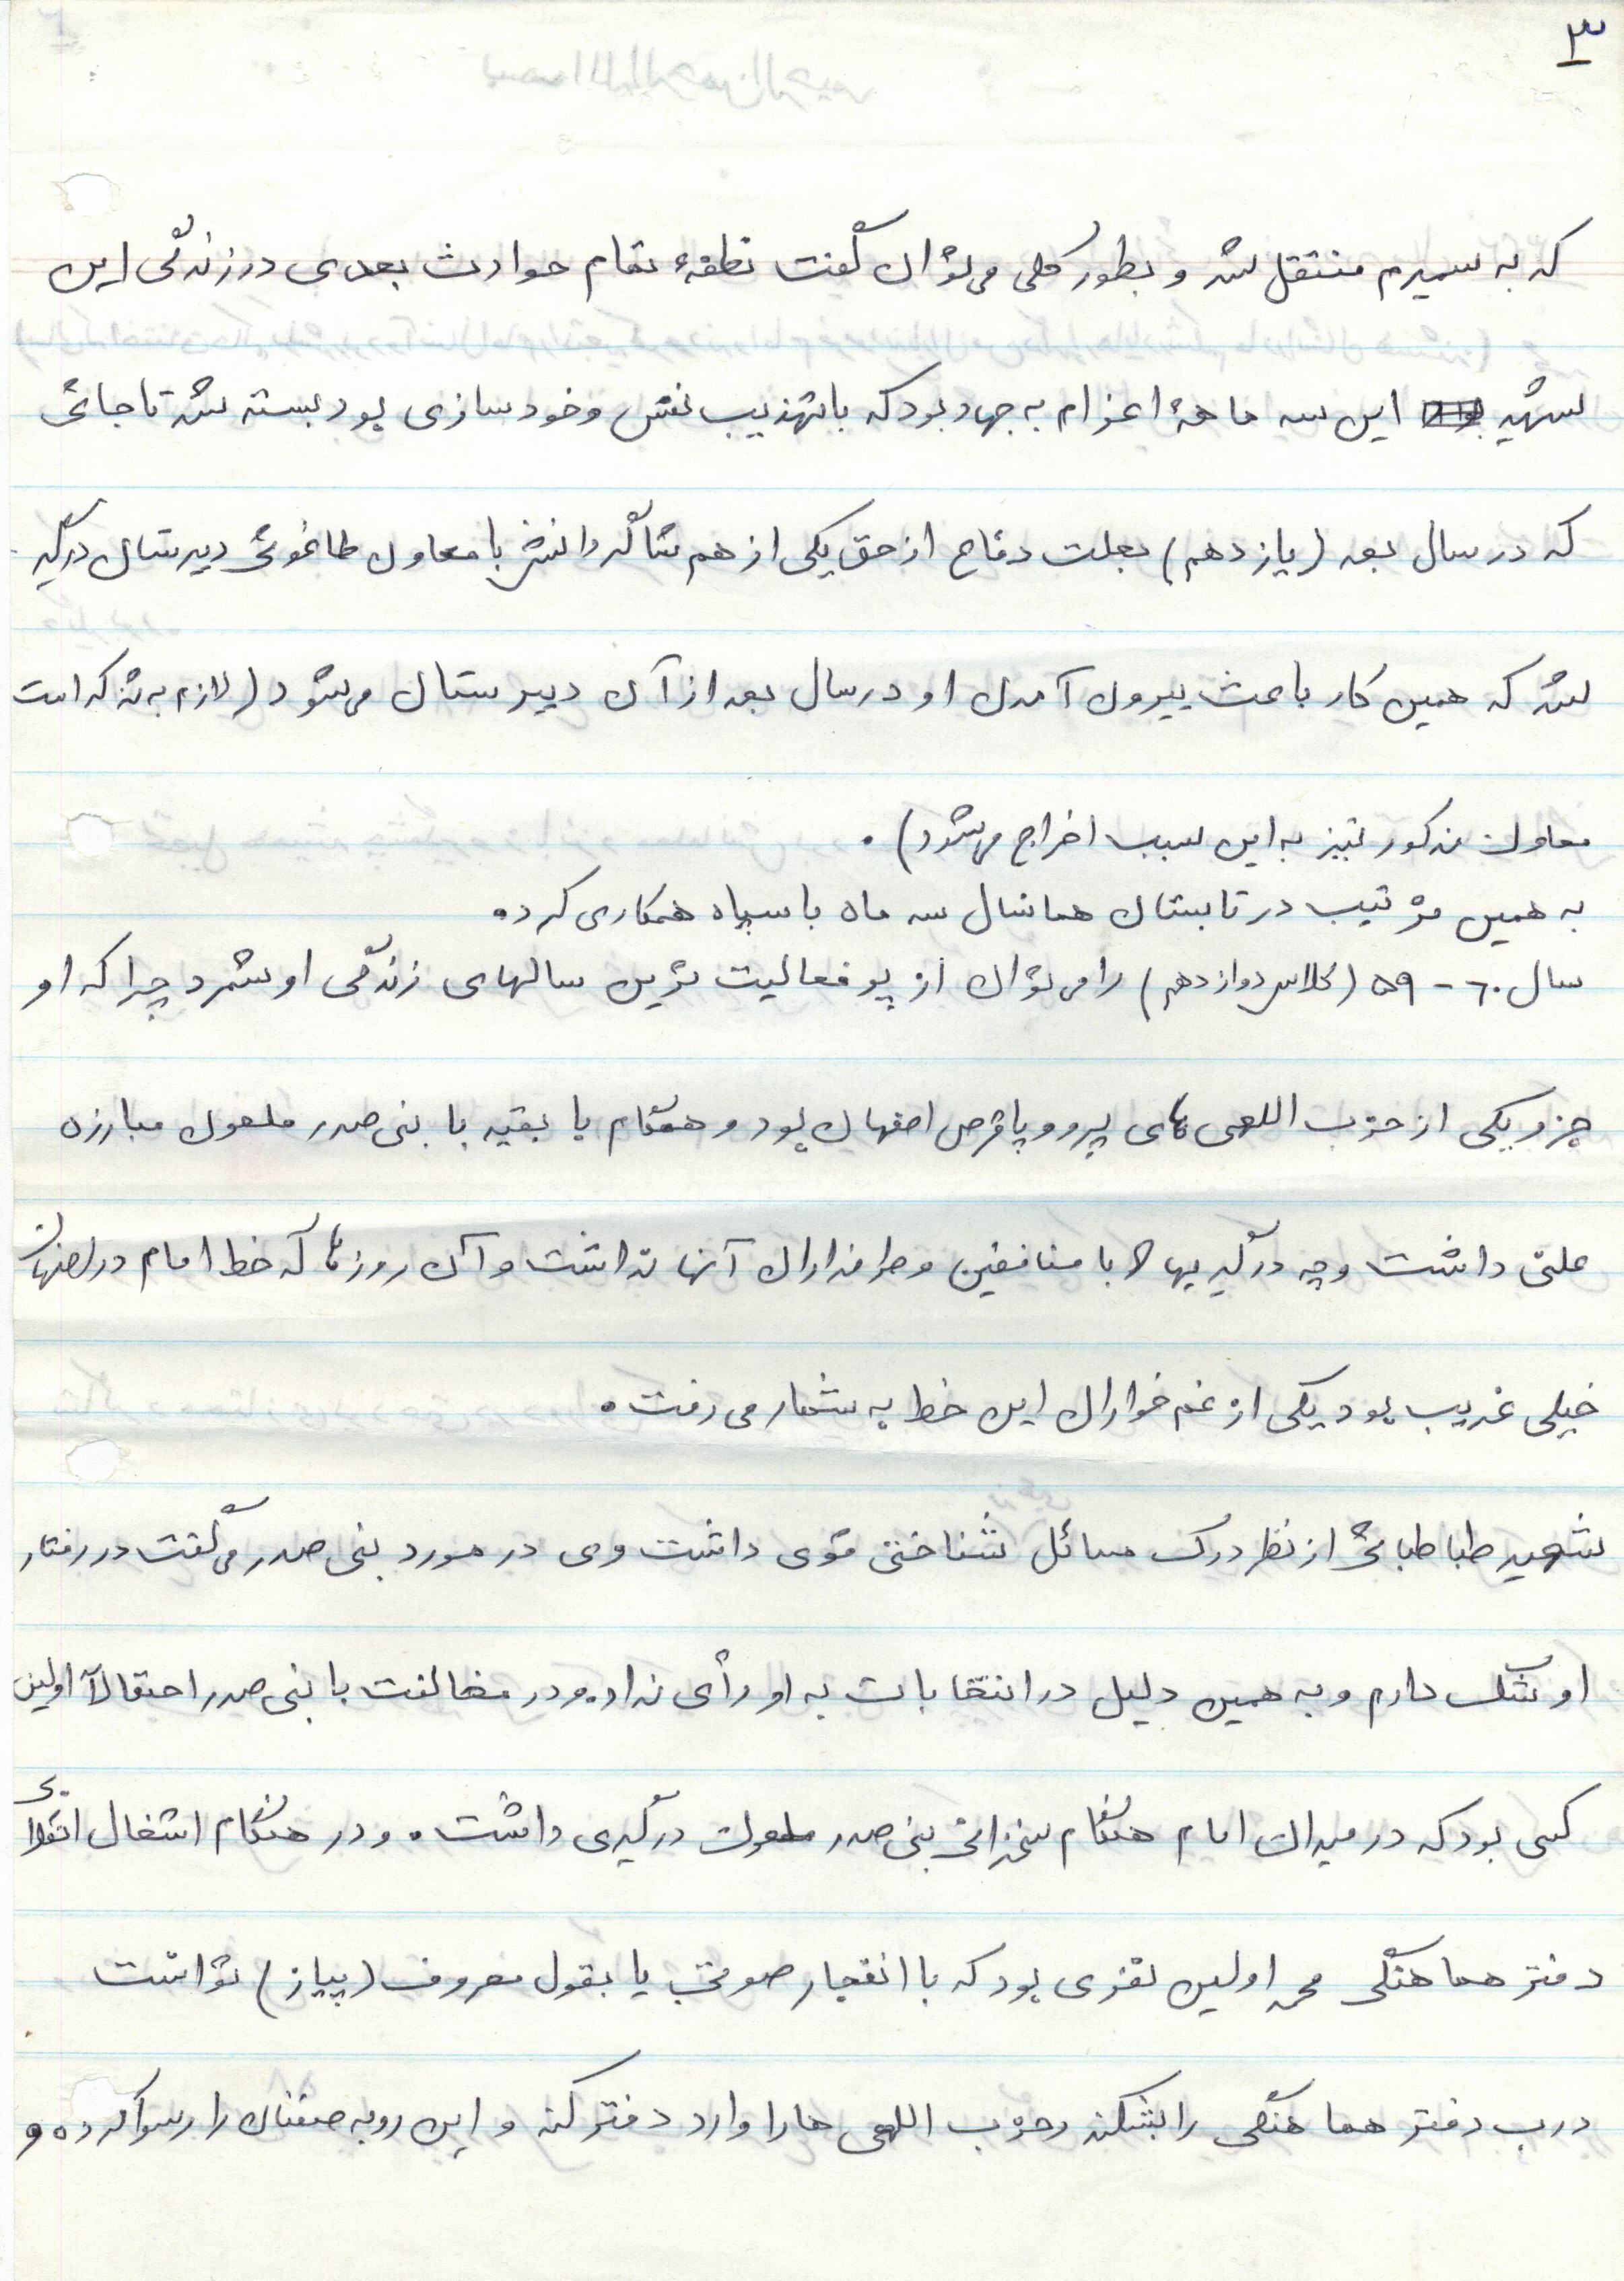 ۳
که به سمیرم منتقل شد و بطور کلی می‌توان گفت نطفهٔ تمام حوادث بعدی در زندگی این
شهید این سه ماههٔ اعزام به جهاد بود که با تهذیب نفس و خودسازی بود بسته شد تا جائی
که در سال بعد (یازدهم) بعلت دفاع از حق یکی از هم شاگردانش با معاون طاغوتی دبیرستان درگیر
شد که همین کار باعث بیرون آمدن او در سال بعد از آن دبیرستان می‌شود (لازم به تذکر است
معاون مذکور نیز به این سبب اخراج می‌شود).
به همین ترتیب در تابستان همانسال سه ماه با سپاه همکاری کرد.
سال ۶۰ - ۵۹ (کلاس دوازدهم) را می‌توان از پر فعالیت ترین سالهای زندگی او شمرد چرا که او
جزو یکی از حزب اللهی های پرو پاقرص اصفهان بود و همگام با بقیه با بنی صدر ملعون مبارزه
علنی داشت و چه درگیریها که با منافقین و طرفداران آنها نداشت و آن روزها که خط امام در اصفهان
خیلی غریب بود یکی از غم خواران این خط به شمار می رفت.
شهید طباطبائی از نظر درک مسائل شناختی قوی داشت وی در مورد بنی صدر می‌گفت در رفتار
او شک دارم و به همین دلیل در انتخابات به او رأی نداد. و در مخالفت با بنی صدر احتمالاً اولین
کسی بود که در میدان امام هنگام سخنرانی بنی صدر ملعون درگیری داشت. و در هنگام اشغال انقلابی
دفتر هماهنگی محمد اولین نفری بود که با انفجار صوتی یا بقول معروف (پیاز) توانست
درب دفتر هماهنگی را بشکند و حزب اللهی ها را وارد دفتر کند و این روبه صفتان را رسوا کرده و